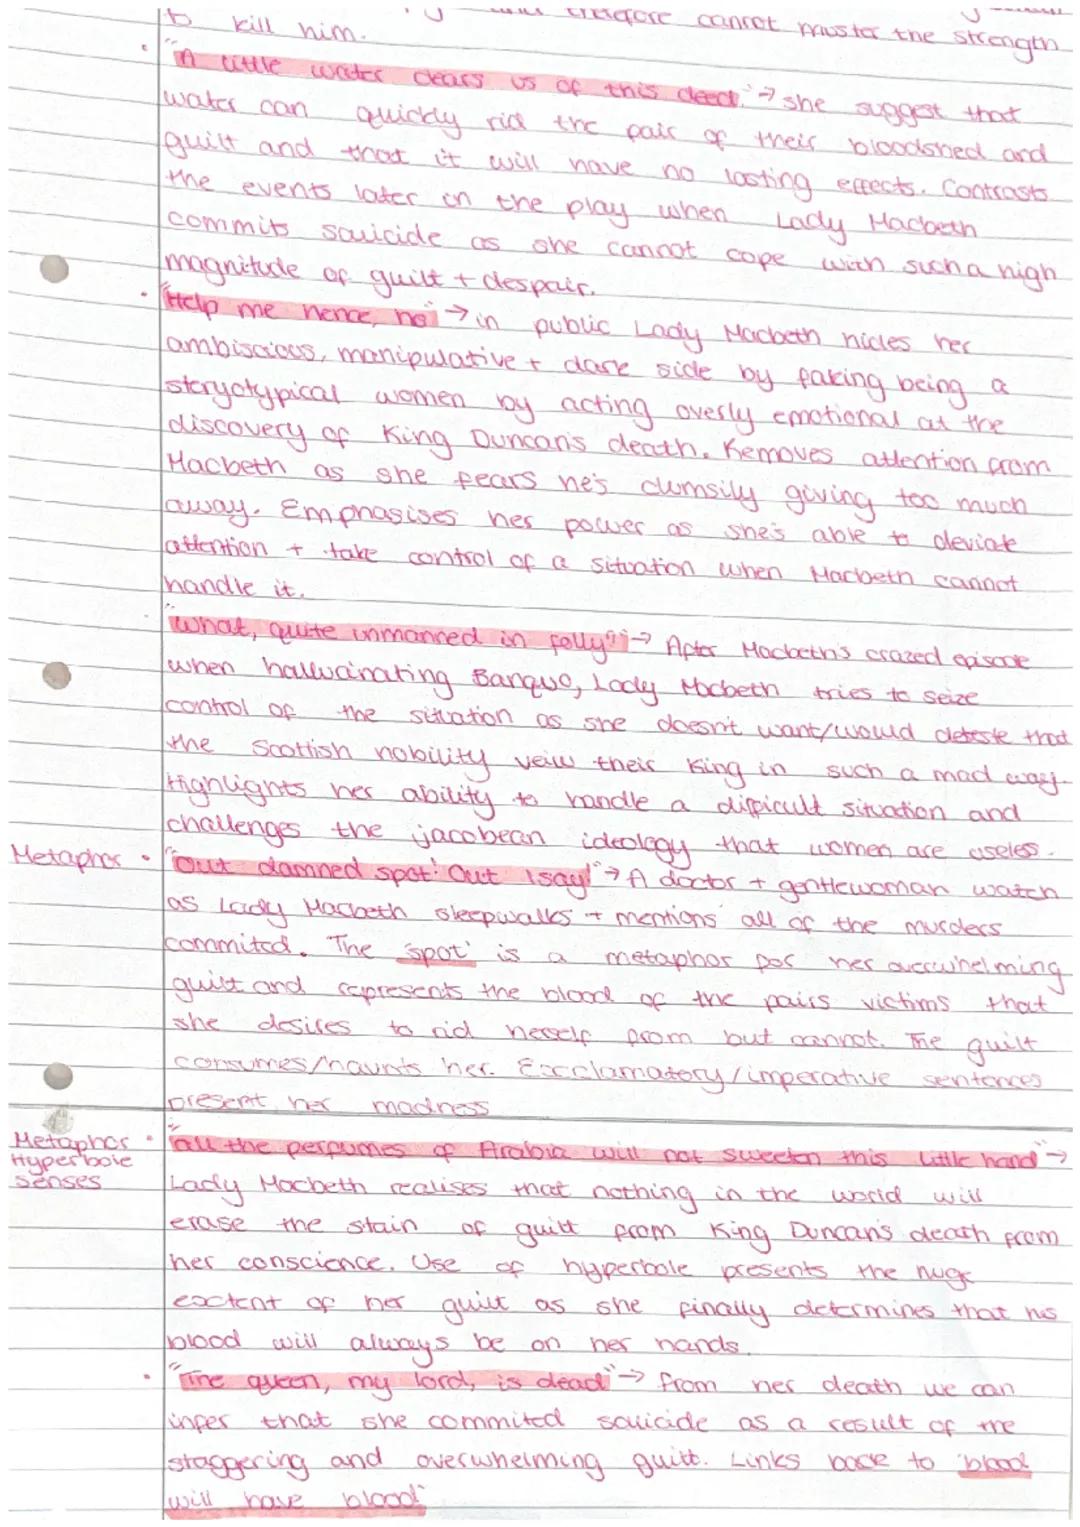 therefore cannot muster the strength
to kill him.
• "A little water clears us of this deed." → she suggest that
water can quickly rid the pair of their bloodshed and
guilt and that it will have no lasting effects. Contrasts
the events later in the play when Lady Macbeth
commits sauicide as she cannot cope with such a high
magnitude of guilt + despair.
• "Help me hence, ho" → in public Lady Macbeth hides her
ambiscious, manipulative + dark side by faking being a
steryotypical women by acting overly emotional at the
discovery of King Duncan's death. Removes attention from
Macbeth as she fears he's clumsily giving too much
away. Emphasises her power as she's able to deviate
attention + take control of a situation when Macbeth cannot
handle it.
"What, quite unmanned in folly" → After Macbeth's crazed episode
when hallucinating Banquo, Lady Macbeth tries to seize
control of the situation as she doesn't want/would deteste that
the Scottish nobility veiw their King in such a mad way.
Highlights her ability to handle a difficult situation and
challenges the jacobean ideology that women are useless.
Metaphor • "Out damned spot! Out I say!" → A doctor + gentlewoman watch
as Lady Macbeth sleepwalks + mentions all of the murders
commited. The 'spot' is a metaphor for her overwhelming
guilt and represents the blood of the pairs victims that
she desires to rid herself from but cannot. The guilt
consumes/haunts her. Exclamatory/imperative sentences
present her madness
Metaphor • "all the perfumes of Arabia will not sweeten this little hand" →
Hyperbole
senses
Lady Macbeth realises that nothing in the world will
erase the stain of guilt from King Duncan's death from
her conscience. Use of hyperbole presents the huge
extent of her guilt as she finally determines that his
blood will always be on her hands.
• "The queen, my lord, is dead" → from her death we can
infer that she commited sauicide as a result of the
staggering and overwhelming guilt. Links back to 'blood
will have blood'